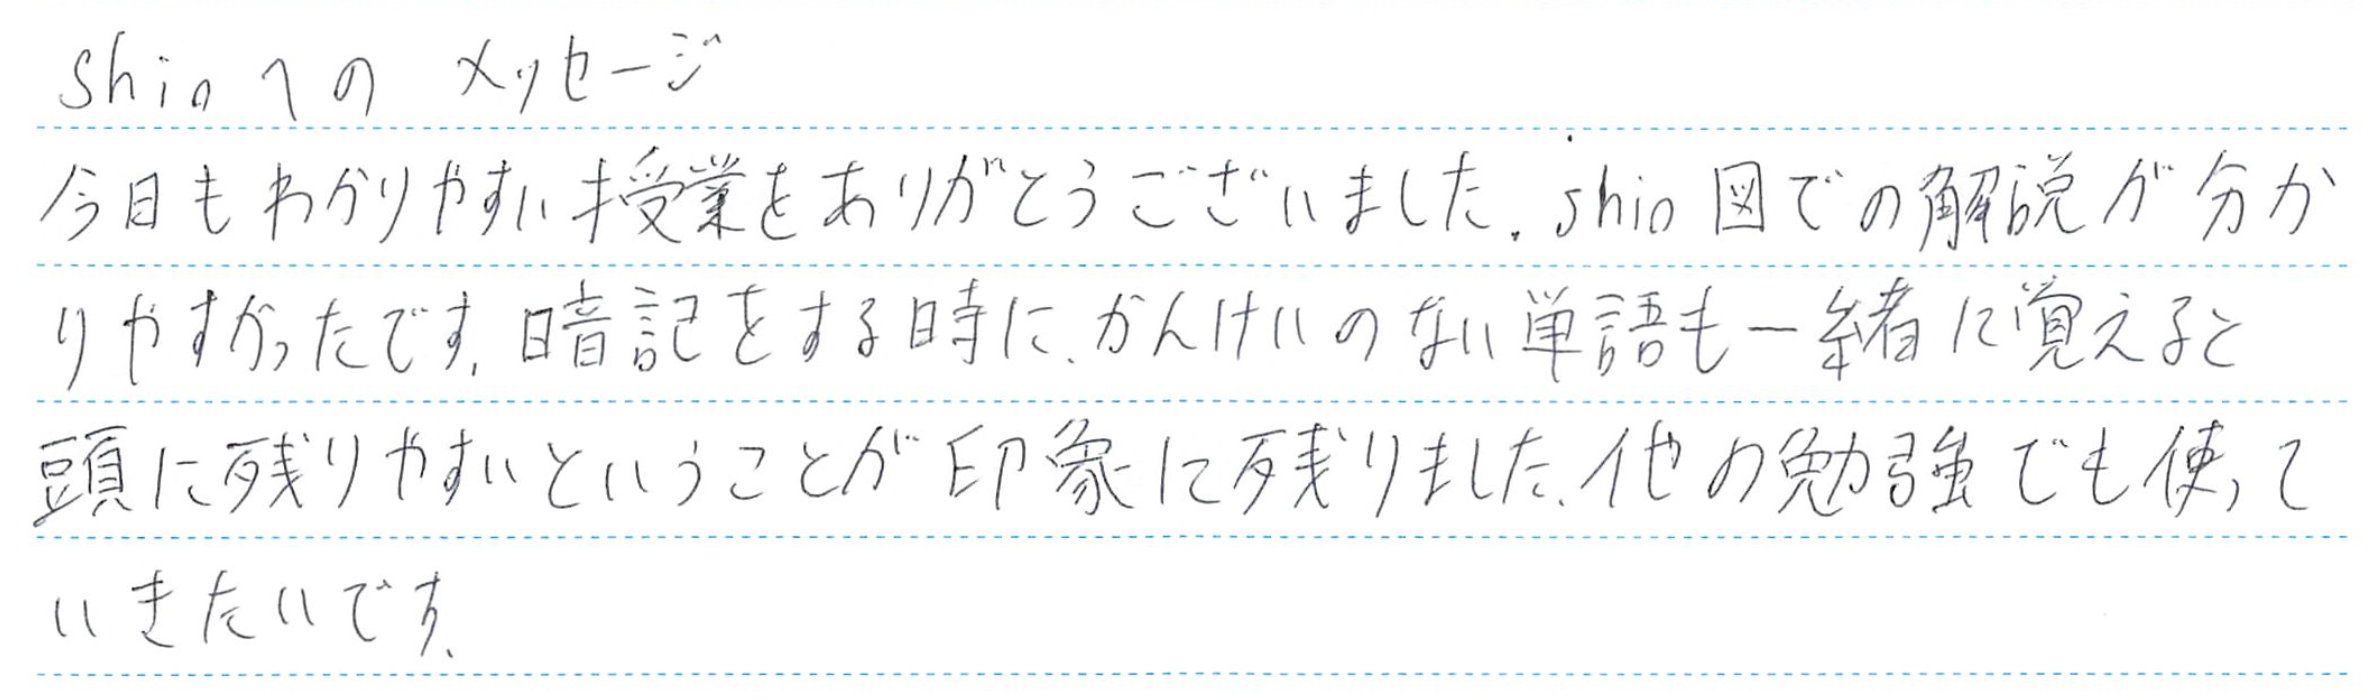 shinへの メッセージ
今日もわかりやすい授業をありがとうございました. shin図での解説が分か
りやすかったです. 暗記をする時に、かんけいのない単語も一緒に覚えると
頭に残りやすいということが印象に残りました. 他の勉強でも使って
いきたいです.